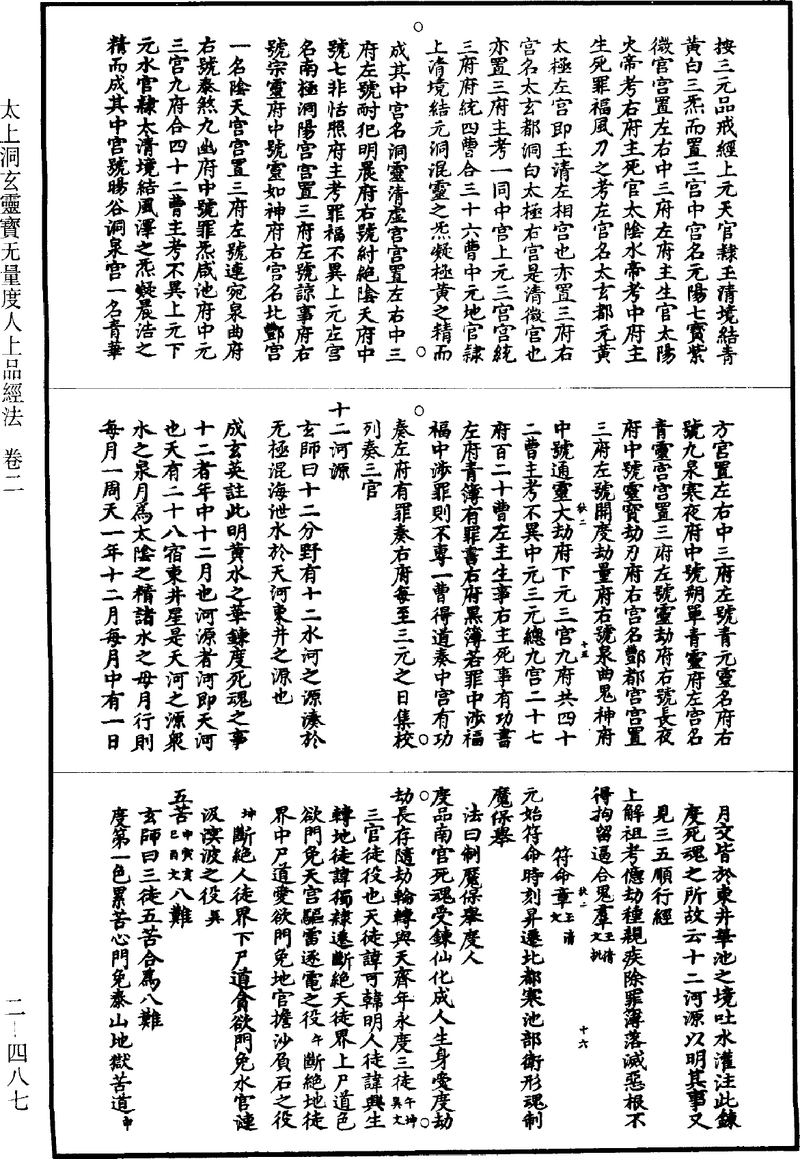 太上洞玄靈寶无量度人上品經法　卷二
二—四八七
按三元品戒經上元天官隸玉清境結青
黃白三炁而置三宮中宮名元陽七寶紫
微宮宮置左右中三府左府主生官太陽
火帝考右府主死官太陰水帝考中府主
生死罪福風刀之考左宮名太玄都元黃
太極左宮即玉清左相宮也亦置三府右
宮名太玄都洞白太極右宮是清微宮也
亦置三府主考一同中宮上元三宮宮統
三府府統四曹合三十六曹中元地官隸
上清境結元洞混靈之炁凝極黃之精而
成其中宮名洞靈清虛宮宮置左右中三
府左號耐犯明晨府右號紂絕陰天府中
號七非恬照府主考罪福不異上元左宮
名南極洞陽宮宮置三府左號諒事府右
號宗靈府中號靈如神府右宮名北酆宮
一名陰天宮宮置三府左號連宛泉曲府
右號泰煞九幽府中號罪炁咸池府中元
三宮九府合四十二曹主考不異上元下
元水官隸太清境結風澤之炁凝晨浩之
精而成其中宮號暘谷洞泉宮一名青華
方宮置左右中三府左號青元靈名府右
號九泉寒夜府中號朔單青靈府左宮名
青靈宮宮置三府左號靈劫府右號長夜
府中號靈寶劫刃府右宮名酆都宮宮置
三府左號開度劫量府右號泉曲鬼神府
中號通靈大劫府下元三宮九府共四十
二曹主考不異中元三元總九宮二十七
府百二十曹左主生事右主死事有功書
左府青簿有罪書右府黑簿若罪中涉福
福中涉罪則不專一曹得道奏中宮有功
奏左府有罪奏右府每至三元之日集校
列奏三官
十二河源
玄師曰十二分野有十二水河之源湊於
无極混海泄水於天河東井之源也
成玄英註此明黃水之華鍊度死魂之事
十二者年中十二月也河源者河即天河
也天有二十八宿東井星是天河之源衆
水之泉月爲太陰之精諸水之母月行則
每月一周天一年十二月每月中有一日
月交皆於東井華池之境吐水灌注此鍊
度死魂之所故云十二河源以明其事又
見三五順行經
上解祖考億劫種親疾除罪簿落滅惡根不
得拘留逼合鬼羣玉清文扎
符命章玉清文
元始符命時刻昇遷北都寒池部衛形魂制
魔保舉
法曰制魔保舉度人
度品南宮死魂受鍊仙化成人生身受度劫
劫長存隨劫輪轉與天齊年永度三徒午坤巽文
三官徒役也天徒諱可韓明人徒諱興生
轉地徒諱獨隸遷斷絕天徒界上尸道色
欲門免天宮驅雷逐電之役午斷絕地徒
界中尸道愛欲門免地官擔沙負石之役
坤斷絕人徒界下尸道貪欲門免水官漣
汲溟波之役巽
五苦申寅亥巳酉文八難
玄師曰三徒五苦合爲八難
度第一色累苦心門免泰山地獄苦道申